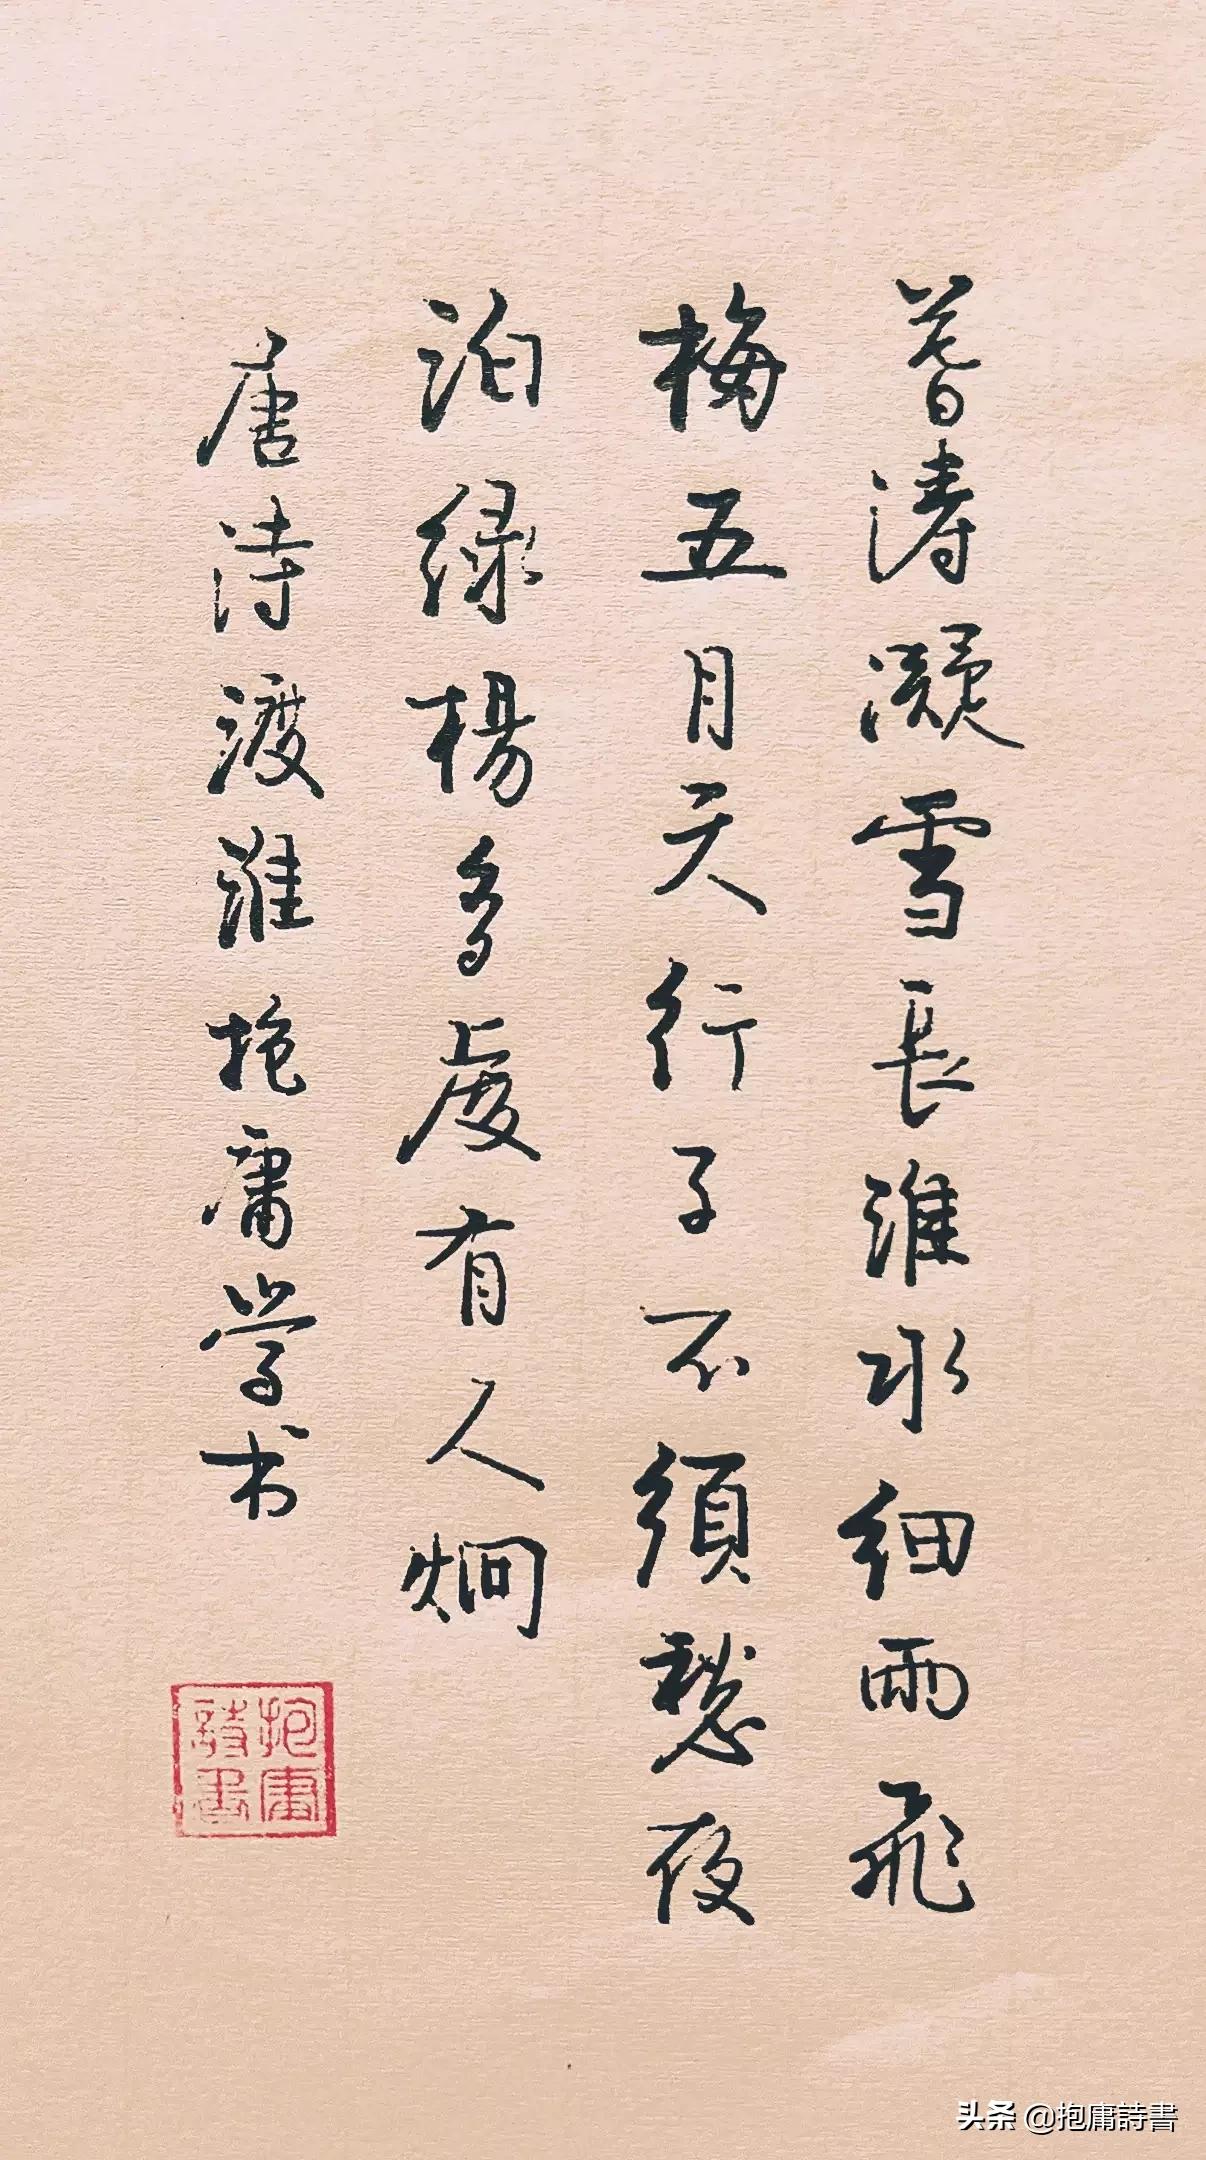 暮涛凝雪長淮水细雨飛
梅五月天行子不須愁夜
泊绿楊多處有人烟
唐诗渡淮抱庸学书
抱庸
詩書
头条 @抱庸詩書